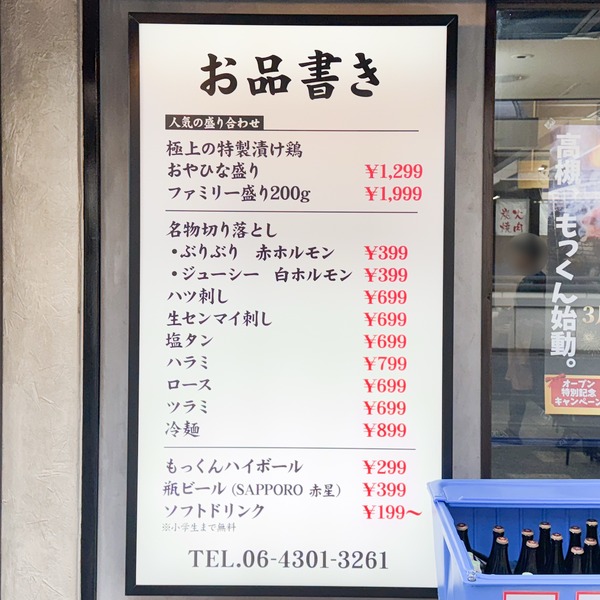 お品書き
人気の盛り合わせ
極上の特製漬け鶏
おやひな盛り ¥1,299
ファミリー盛り200g ¥1,999
名物切り落とし
・ぶりぶり 赤ホルモン ¥399
・ジューシー 白ホルモン ¥399
ハツ刺し ¥699
生センマイ刺し ¥699
塩タン ¥699
ハラミ ¥799
ロース ¥699
ツラミ ¥699
冷麺 ¥899
もっくんハイボール ¥299
瓶ビール(SAPPORO 赤星) ¥399
ソフトドリンク ¥199〜
※小学生まで無料
TEL.06-4301-3261
高槻
もっくん始動。
3
オープン
特別記念
キャンペーン